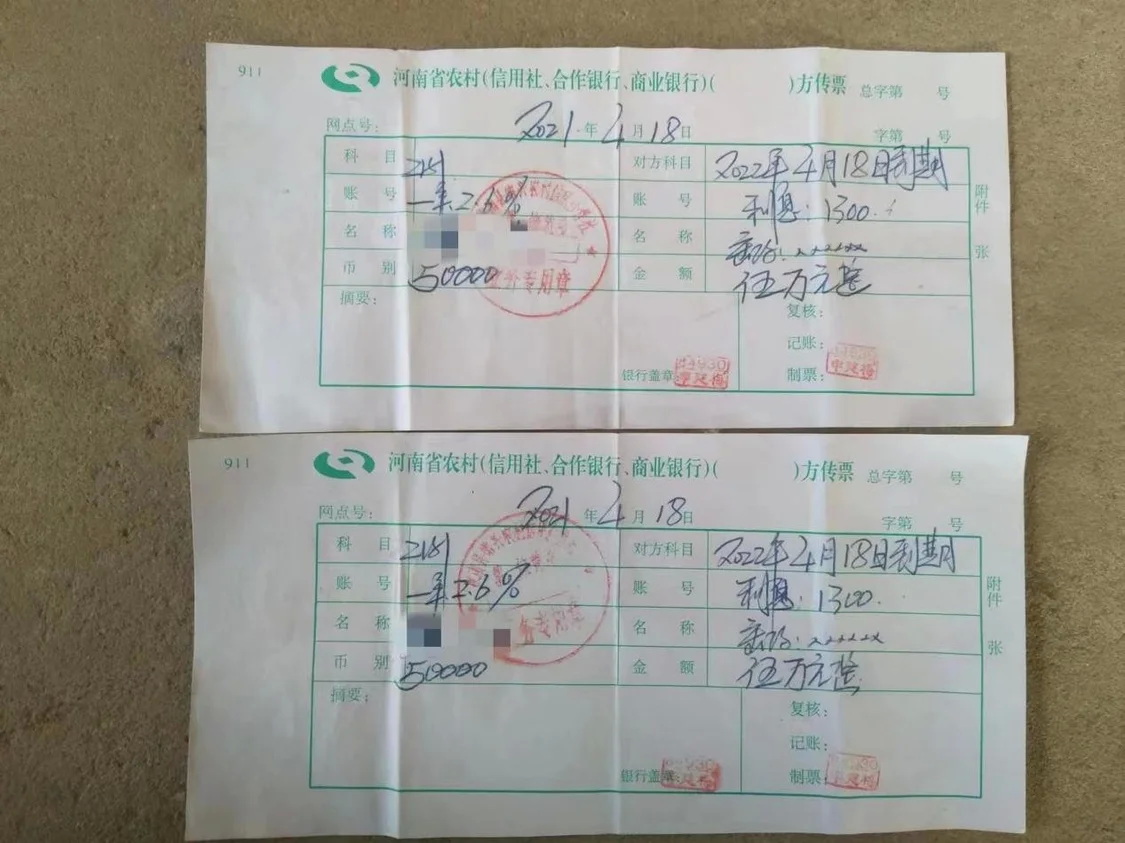 911 河南省农村(信用社、合作银行、商业银行)( )方传票 总字第 号
网点号: 2021年4月18日 字第 号
科目 2151 对方科目 2022年4月18日到期
账号 一年2.6% 账号 利息:1300.
名称 名称 密码:××××××
币别 50000 金额 伍万元整
业务专用章
附件 张
摘要: 复核:
记账:
银行盖章 制票: 申建梅
911 河南省农村(信用社、合作银行、商业银行)( )方传票 总字第 号
网点号: 2021年4月18日 字第 号
科目 2151 对方科目 2022年4月18日到期
账号 一年2.6% 账号 利息:1300.
名称 名称 密码:××××××
币别 50000 金额 伍万元整
务专用章
附件 张
摘要: 复核:
记账:
银行盖章 制票: